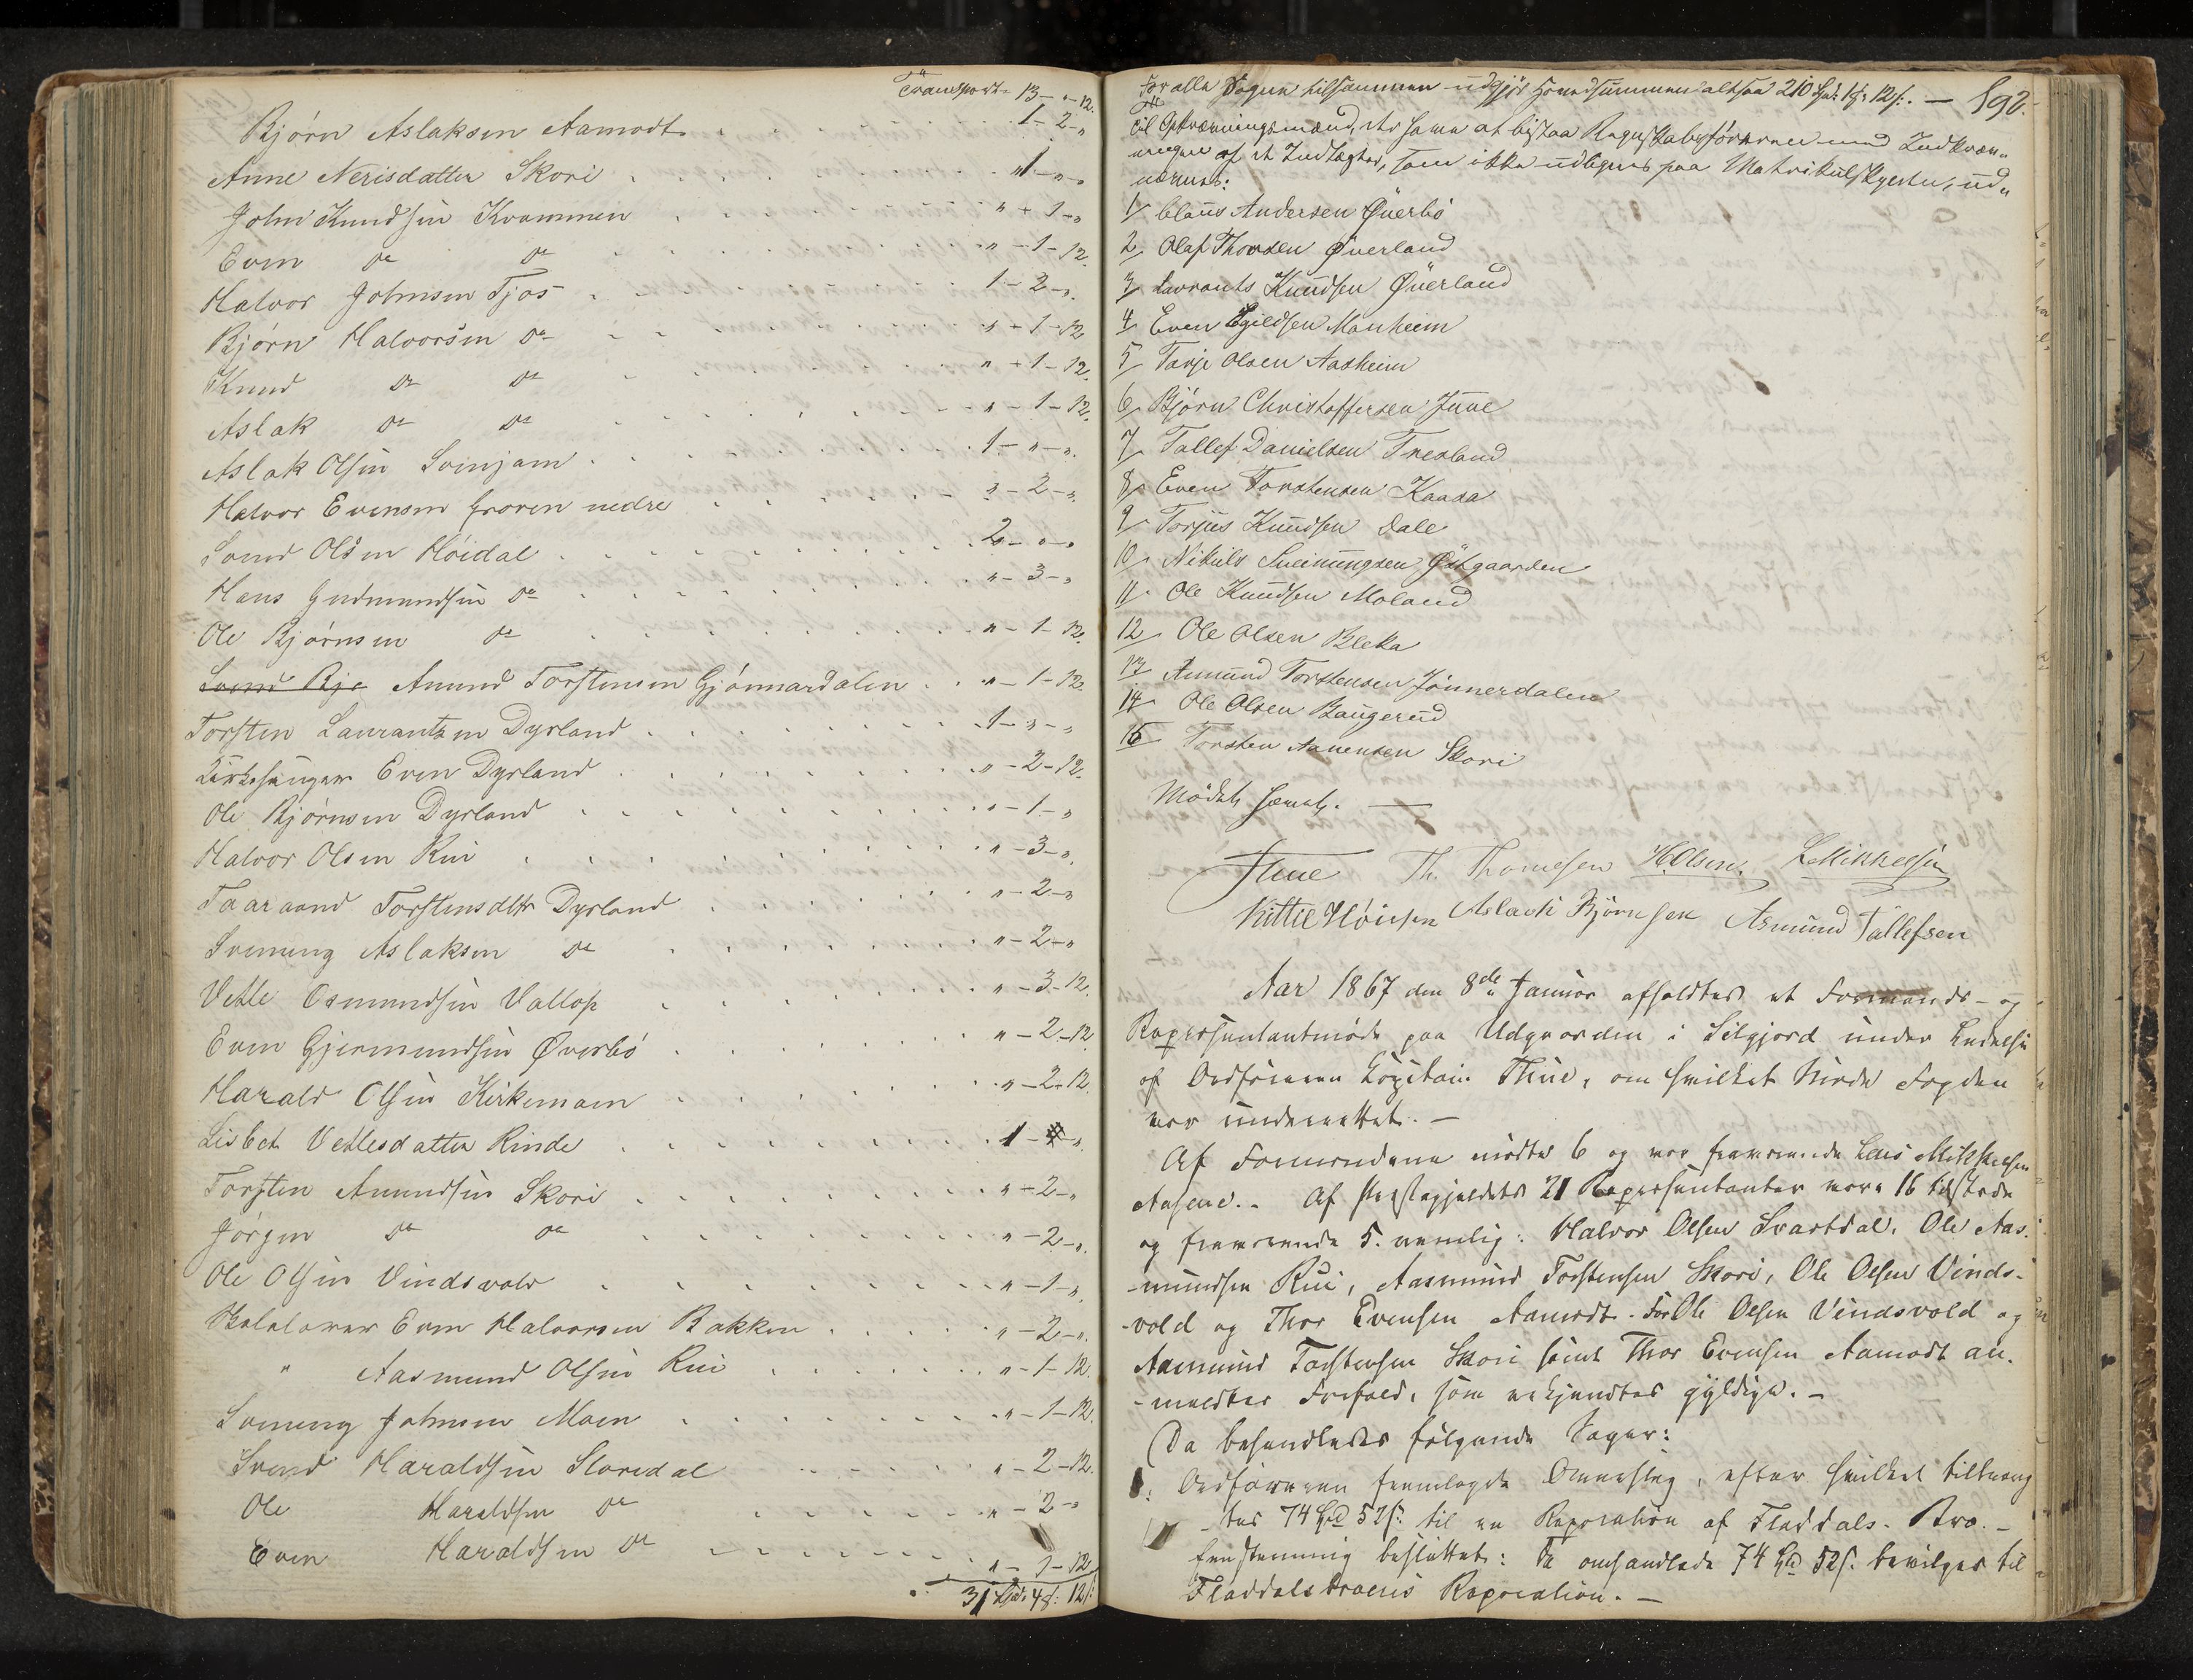 Transport 13 - " - 12.
Bjørn Aslaksen Aamodt 1 - 2 - "
Anne Nerisdatter Skori " 1 - " - "
John Knudsen Kvammen " + 1 - "
Even do do " - 1 - 12.
Halvor Johnsen Tjos 1 - 2 - ".
Bjørn Halvorsen do " + 1 - 12
Knud do do " + 1 - 12.
Aslak do do " - 1 - 12.
Aslak Olsen 1 - " - ".
Halvor Evensen Groven nedre " - 2 - ".
Svend Olsen Høidal 2 - " - "
Hans Gudmundsen do " - 3 - "
Ole Bjørnsen do " - 1 - 12.
Svend Bjø Amund Torstensen Gjønnardalen " - 1 - 12.
Torsten Laurantzen Dyrland 1 - " - "
Kirkesanger Even Dyrland " - 2 - 12.
Ole Bjørnsen Dyrland " - 1 - "
Halvor Olsen Rui " - 3 - ".
Taaraand Torstensdtr Dyrland " - 2 - "
Svenung Aslaksen do " - 2 - "
Vetle Osmundsen Vallop " - 3 - 12.
Even Gjermundsen Øverbø " - 2 - 12
Harald Olsen Kirkemoen " - 2 - 12.
Lisbet Vetlesdatter Rinde 1 - " - ".
Torsten Amundsen Skori " - 2 - "
Jørgen do do " - 2 - ".
Ole Olsen Vindsvold " - 1 - ".
Skolelærer Even Halvorsen Bakken " - 2 - ".
" Aasmund Olsen Rui " - 1 - 12.
Svenung Johnsen Moen " - 1 - 12.
Svend Haraldsen Storedal " - 2 - 12.
Ole Haraldsen do " - 2 - "
Even Haraldsen do " - 1 - 12
31 Spd. 4 ß: 12 ß:
For alle Sogne tilsammen udgjør Hovedsummen altsaa 210 Spd. 1 ß: 12 ß:. — 192.
Til Opkrævningsmænd, der have at bistaa Regnskabsføreren med Indkræv"
ningen af de Indtægter, som ikke udlignes paa Matrikulskylden, ud"
nævnes:
1/ Claus Andersen Øverbø
2/ Olaf Thovsen Øverland
3/ Lavrants Knudsen Øverland
4/ Even Egildsen Manheim
5/ Tarje Olsen Aasheim
6/ Bjørn Christoffersen June
7/ Tallef Danielsen Tresland
8/ Even Torstensen Kaasa
9/ Torjus Knudsen Dale
10/ Nikuls Sveinungsen Østgaarden
11/ Ole Knudsen Moland
12/ Ole Olsen Bleka
13/ Amund Torstensen Jønnerdalen
14/ Ole Olsen Baugerud
15/ Torsten Aanensen Skori
Mødet hævet. —
Thue Th. Thomesen H. Olsen. L. Mikkelsen
Kittil Høiesen Aslack Bjørnsen Asmund Tallefsen
Aar 1867 den 8de Januar afholdtes et Formands- og
Repræsentantmøde paa Udgaarden i Siljord under Ledelse
af Ordføreren Capitain Thue, om hvilket Møde Fogden
var underrettet. —
Af Formændene mødte 6 og var fraværende Lars Mikkelsen
Aasene. . Af Præstegjeldets 21 Repræsentanter vare 16 tilstede
og fraværende 5. nemlig: Halvor Olsen Svartdal, Ole Aas-
-mundsen Rui, Aasmund Torstensen Skori, Ole Olsen Vinds-
-vold og Thor Evensen Aamodt. For Ole Olsen Vindsvold og
Aasmund Torstensen Skori samt Thor Evensen Aamodt an-
-meldtes Forfald, som erkjendtes gyldige. —
Da behandledes følgende Sager:
1: Ordføreren fremlagde Overslag, efter hvilket tiltræng
-tes 74 Spd 52 ß: til en Reparation af Fladdals-Bro. —
Eenstemmig besluttet: De omhandlede 74 Spd 52 ß. bevilges til
Fladdalsbroens Reparation. —